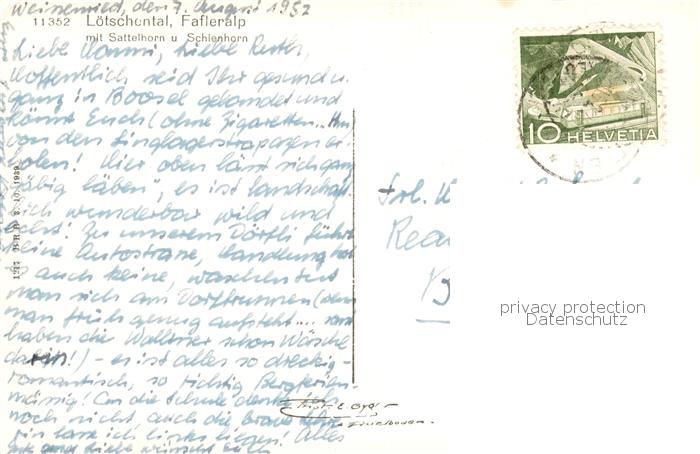 Weissenried, den 7. August 1952
11352 Lötschental, Fafleralp
mit Sattelhorn u. Schienhorn
Liebe Nanni, liebe Ruth,
Hoffentlich seid Ihr gesund u.
ganz in Boosel gelandet und
könnt Euch (ohne Zigaretten..
von den Singlagerstrapazen er-
holen! Hier oben lässt sich ganz
gäbig läben", es ist landschaft-
lich wunderbar wild und
Zu unserem Dörfli führt
keine Autostrasse, Handlung hat
auch keine, waschen tut
man sich am Dorfbrunnen (denn
man früh genug aufsteht.... sonst
haben die Walliser schon Wäsche
darin!) - es ist alles so dreckig-
romantisch, so richtig Bergferien-
mässig! An die Schule denke ich
noch nicht, auch die
ich links liegen! Alles
und Liebe wünscht Euch
10 HELVETIA
Frl.
privacy protection
Datenschutz